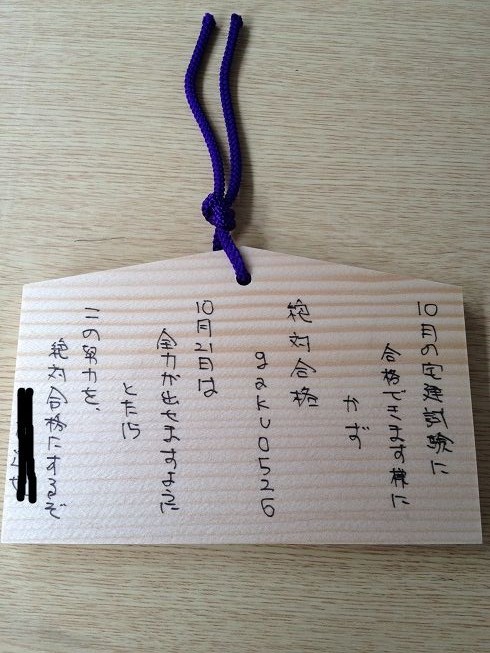 10月の宅建試験に
合格できます様に
かず
絶対合格
gaku0526
10月21日は
全力が出せますように
とたに
この努力を、
絶対合格にするぞ